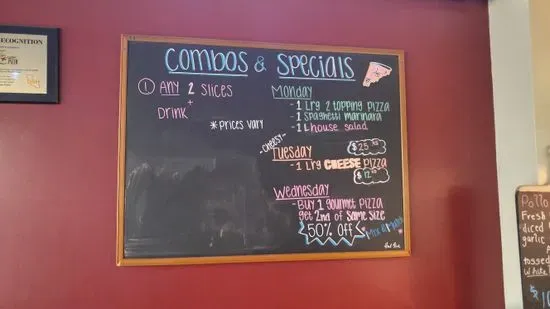 RECOGNITION
COMBOS & SPECIALS
① ANY 2 SLICES
+
DRINK
*PRICES VARY
Monday
- 1 Lrg 2 topping pizza
- 1 Spaghetti marinara
- 1 L house salad
$25
-CHEESY-
Tuesday
- 1 Lrg CHEESE Pizza
$12
Wednesday
- Buy 1 gourmet pizza
get 2nd of same size
50% OFF
Mix & Match
Pollo
Fresh
diced
garlic
tossed